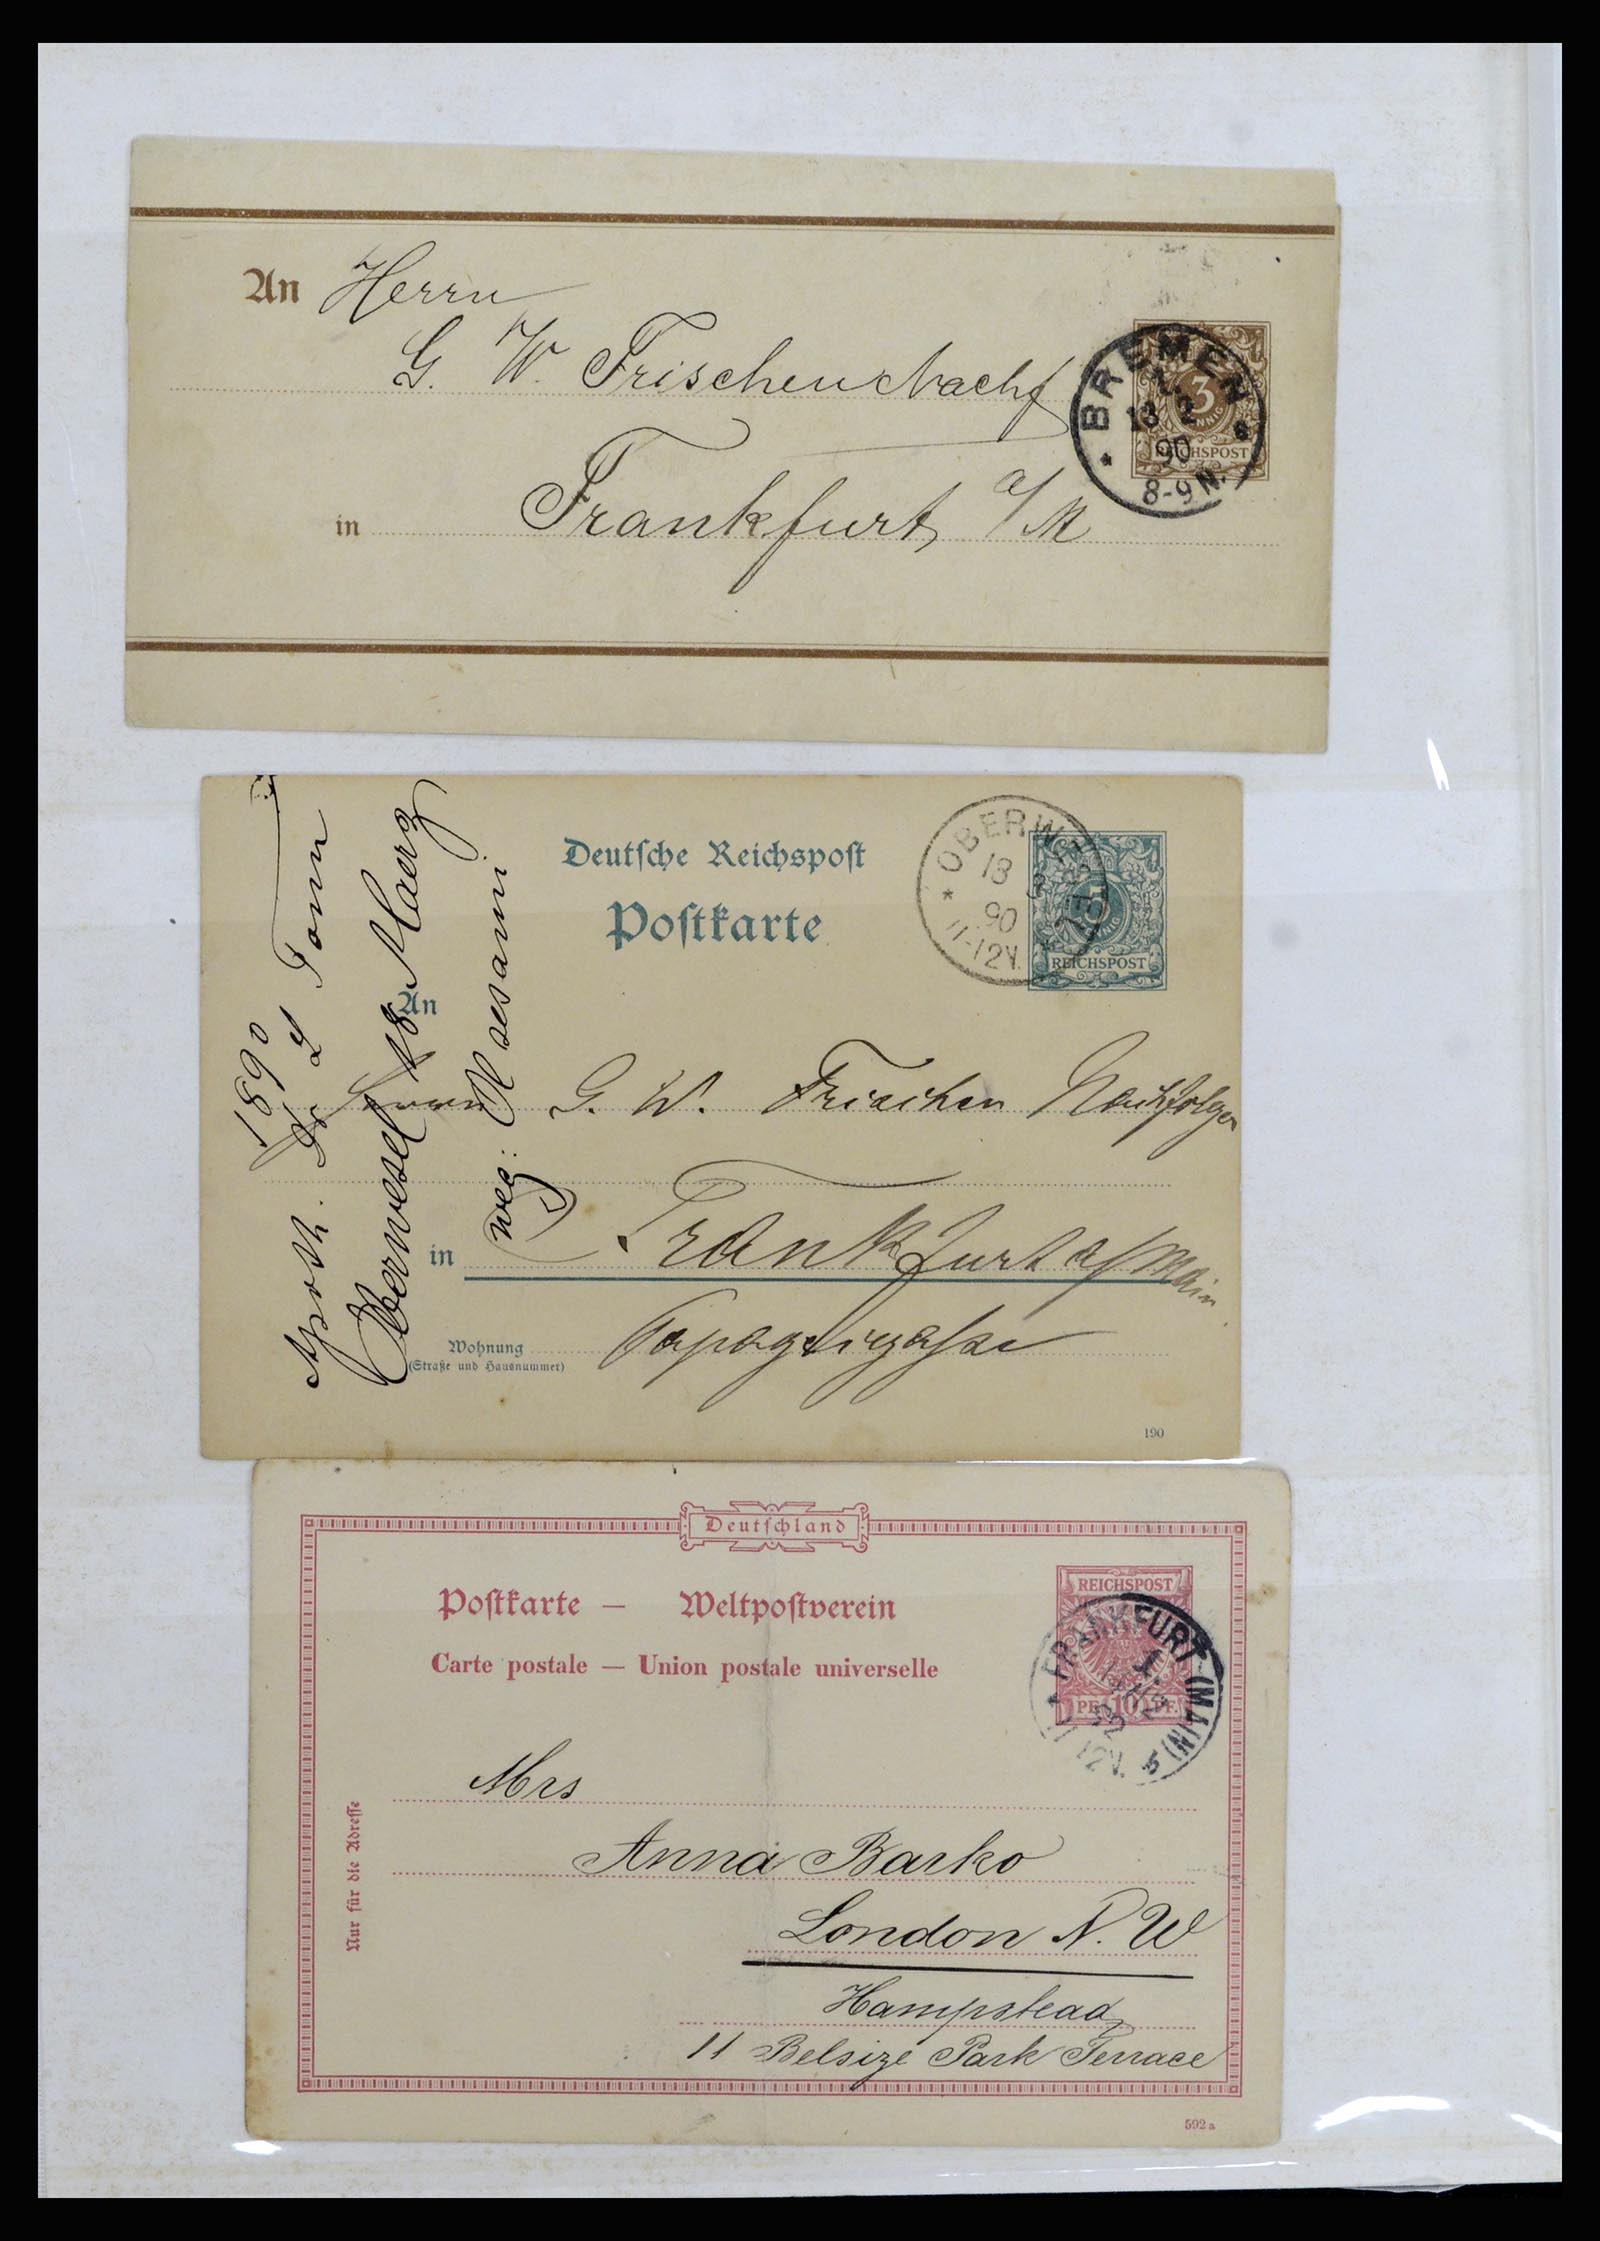 An Herrn
G. W. Frischen Nachf
in Frankfurt a/M
BREMEN
1.
13 2
90
8-9 N.
3
PFENNIG
REICHSPOST
Deutſche Reichspoſt
Poſtkarte
OBERWESEL
13 3
90
11-12V.
5
REICHSPOST
An
Herrn G. W. Frischen Nachfolger
in Frankfurt a/Main
Wohnung
(Straße und Hausnummer)
190
1890
Apoth.
Oberwesel 18 Maerz
Deutſchland
Poſtkarte — Weltpoſtverein
Carte postale — Union postale universelle
REICHSPOST
PF. 10 PF.
FRANKFURT (MAIN) 5
12V.
Nur für die Adreſſe
Mrs
Anna Barko
London N. W
Hampstead
11 Belsize Park Terrace
592 a